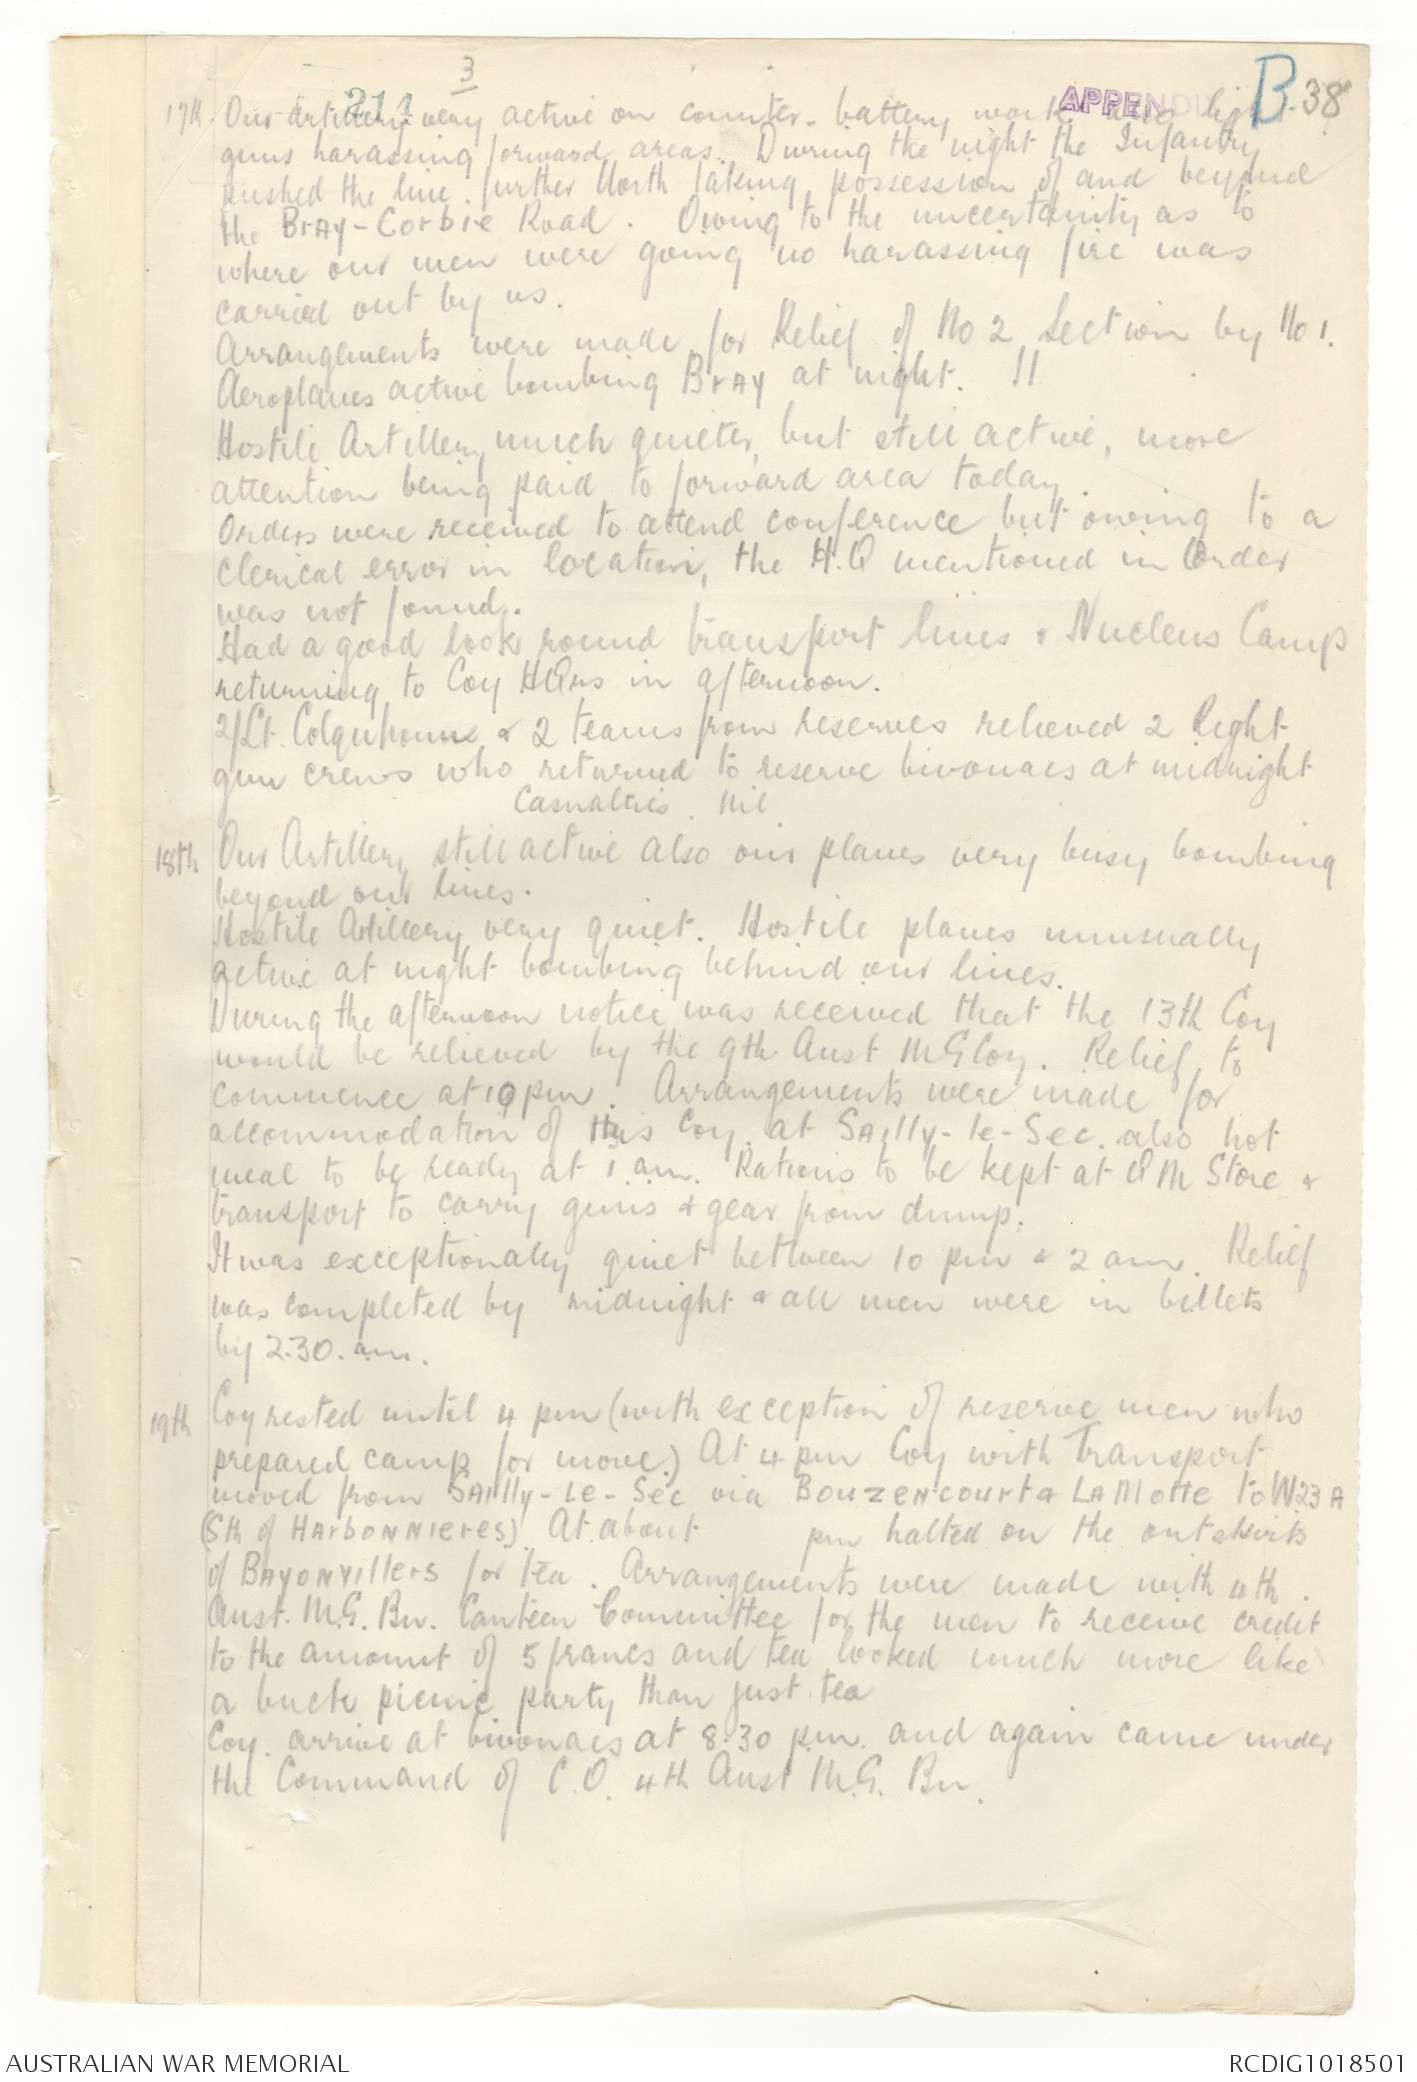 3
211
APPENDI B-38
17th. Our Artillery very active on counter-battery work also light
guns harassing forward areas. During the night the Infantry
pushed the line further North taking possession of and beyond
the Bray-Corbie Road. Owing to the uncertainity as to
where our men were going no harassing fire was
carried out by us.
Arrangements were made for Relief of No 2 Section by No 1.
Aeroplanes active bombing Bray at night. !!
Hostile Artillery much quieter, but still active, more
attention being paid to forward area today.
Orders were received to attend conference but owing to a
clerical error in location, the H.Q mentioned in Order
was not found.
Had a good look round transport lines & Nucleus Camp
returning to Coy HQrs in afternoon.
2/Lt. Colquhoun & 2 teams from reserves relieved 2 Right
gun crews who returned to reserve bivouacs at midnight
Casualties. Nil
18th Our Artillery still active also our planes very busy bombing
beyond our lines.
Hostile Artillery very quiet. Hostile planes unusually
active at night bombing behind our lines.
During the afternoon notice was received that the 13th Coy
would be relieved by the 9th Aust M G Coy. Relief to
commence at 10 pm. Arrangements were made for
accommodation of this Coy. at Sailly-le-Sec. also hot
meal to be ready at 1 am. Rations to be kept at Q M Store &
transport to carry guns & gear from dump.
It was exceptionally quiet between 10 pm & 2 am. Relief
was completed by midnight & all men were in billets
by 2.30. am.
19th Coy rested until 4 pm (with exception of reserve men who
prepared camp for move.) At 4 pm Coy with Transport
moved from Sailly-Le-Sec via Bouzencourt & La Motte to W23A
(Sth of Harbonnieres). At about pm halted on the outskirts
of Bayonvillers for tea. Arrangements were made with 4th
Aust. M.G. Bn. Canteen Committee for the men to receive credit
to the amount of 5 francs and tea looked much more like
a buck picnic party than just tea
Coy. arrive at bivouacs at 8.30 p.m. and again came under
the Command of C.O. 4th Aust M.G. Bn.
AUSTRALIAN WAR MEMORIAL
RCDIG1018501